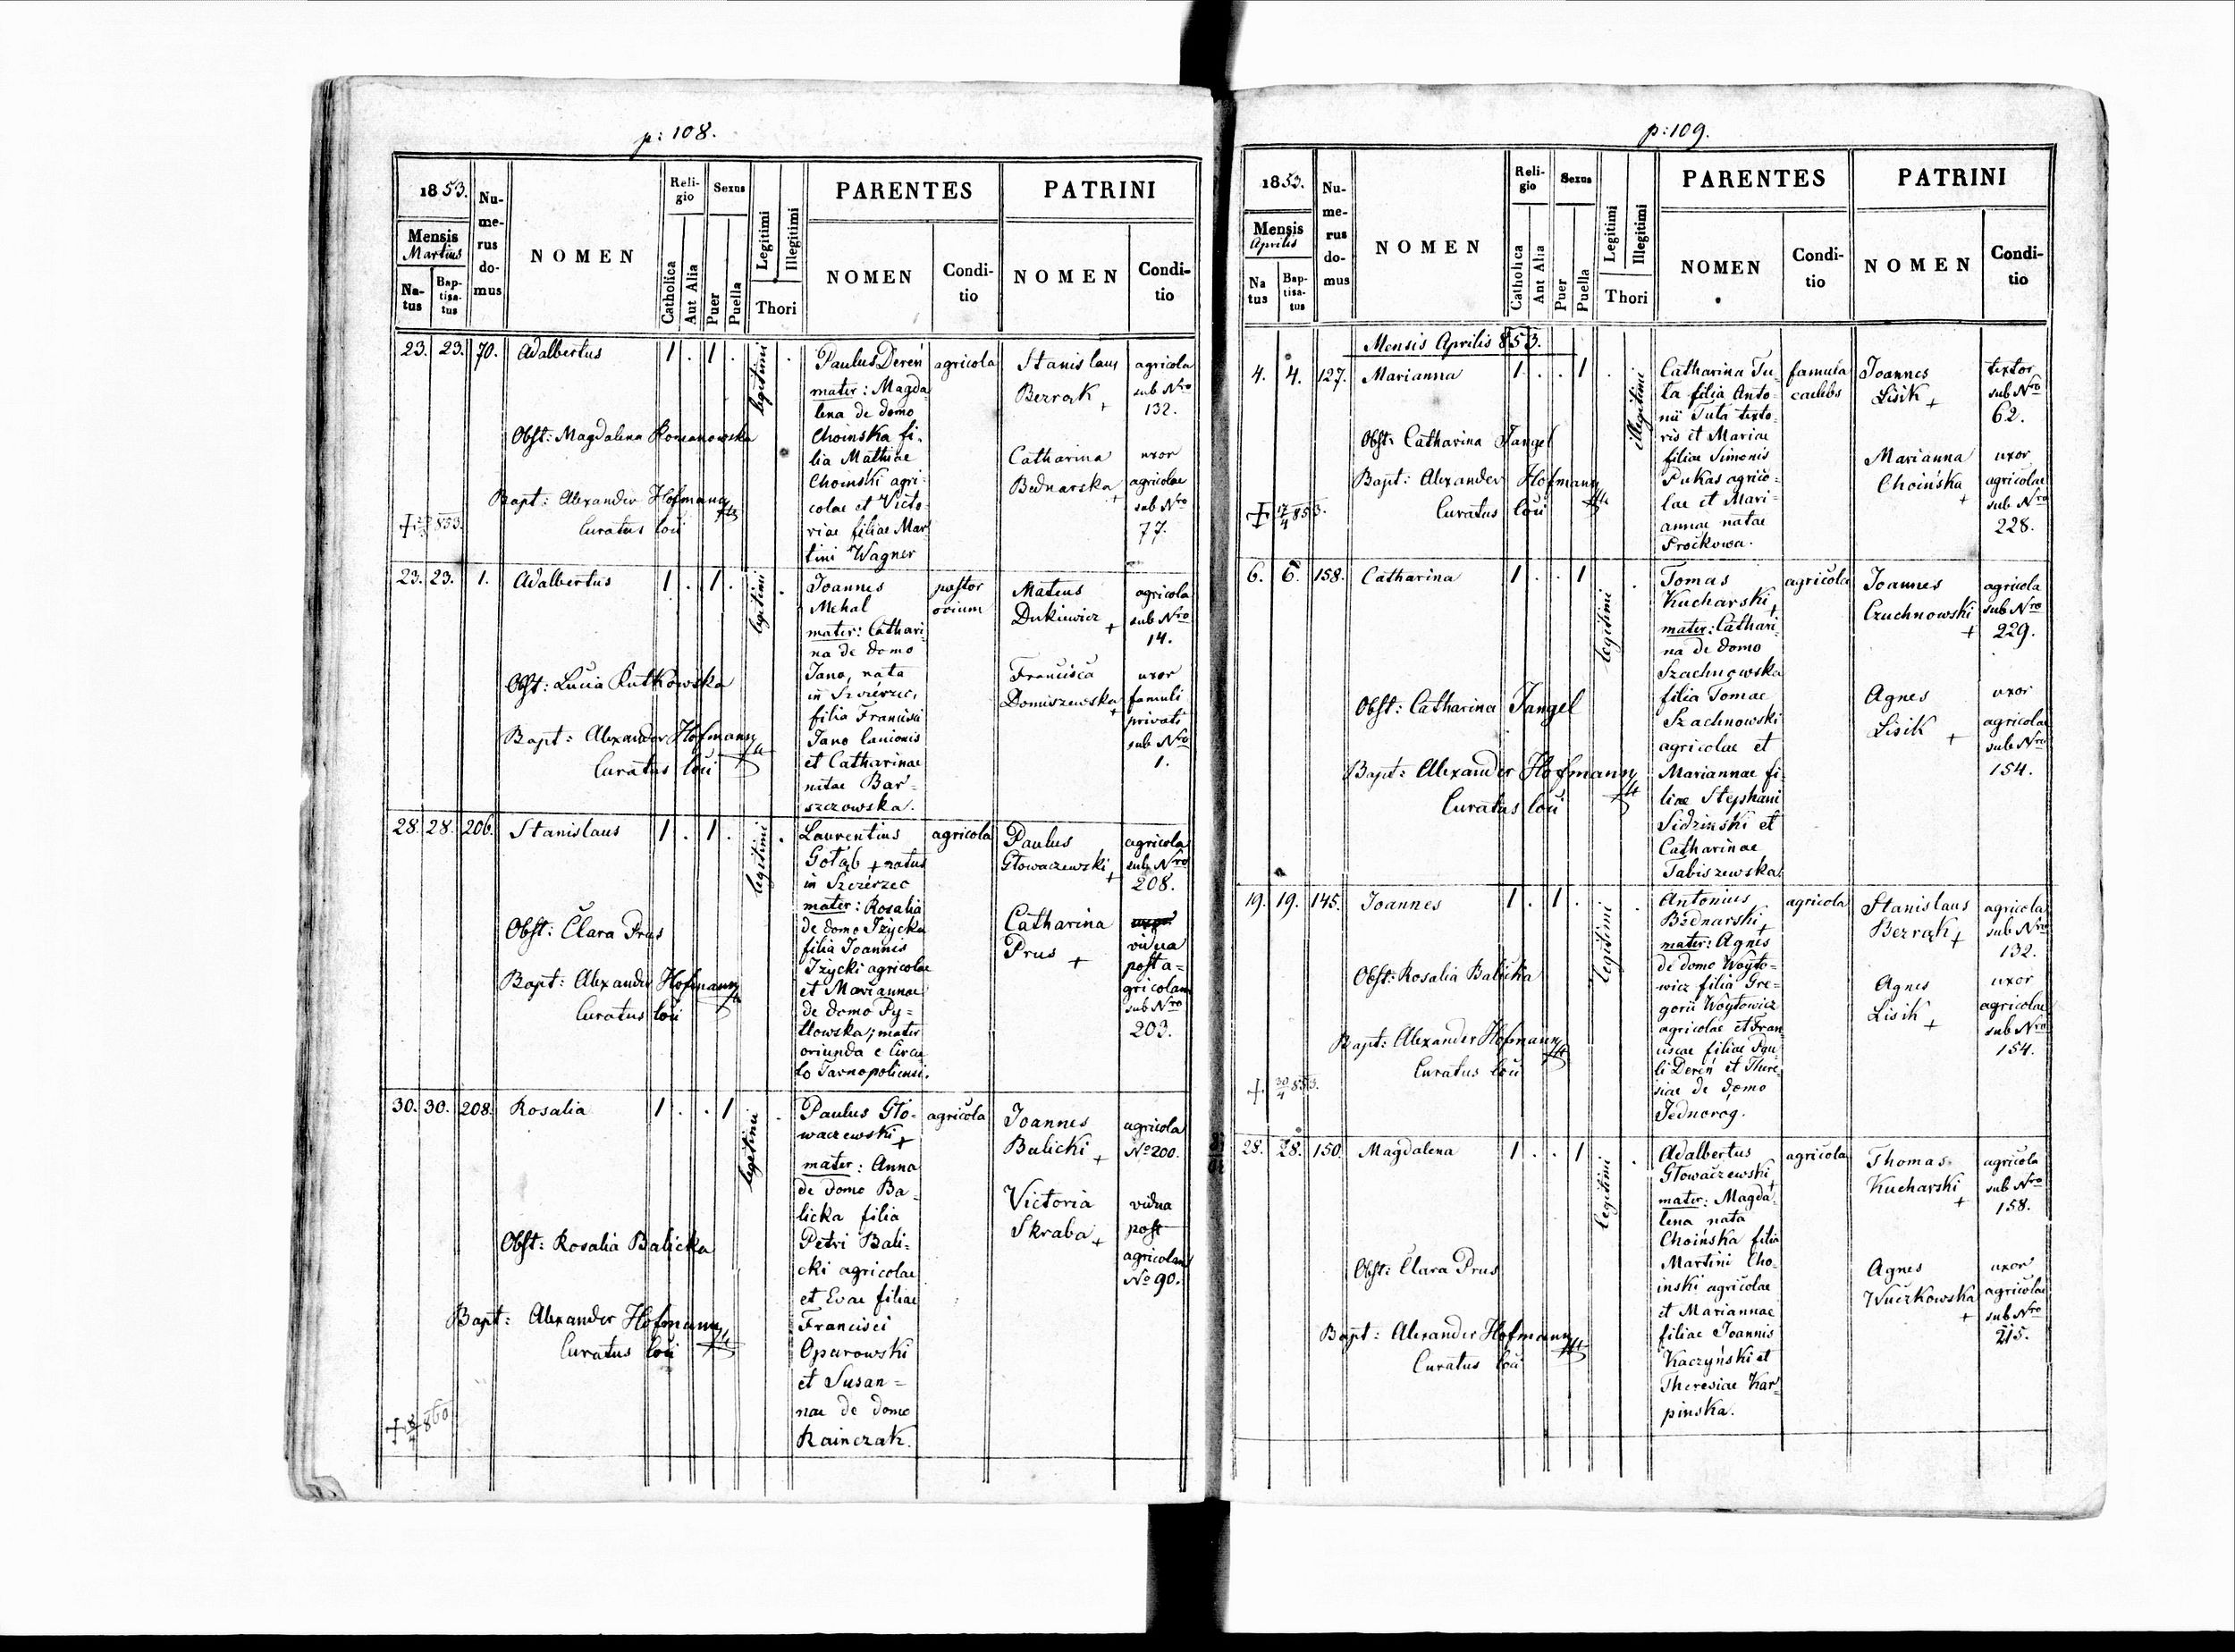 p: 108.
1853.
Mensis
Martius
Na-
tus
Bap-
tisa-
tus
Nu-
me-
rus
do-
mus
NOMEN
Reli-
gio
Catholica
Aut Alia
Sexus
Puer
Puella
Legitimi
Illegitimi
Thori
PARENTES
NOMEN
Condi-
tio
PATRINI
NOMEN
Condi-
tio
23. 23. 70. Adalbertus 1 . 1 .
legitimi
Obst: Magdalena Romanowska
Bapt: Alexander Hofmann
Curatus loci
853.
Paulus Dereń
mater: Magda
lena de domo
Choinska fi-
lia Mathiae
Choinski agri-
colae et Victo-
riae filiae Mar
tini Wagner
agricola
Stanislaus
Bezrok +
Catharina
Bednarska +
agricola
sub Nro
132.
uxor
agricolae
sub Nro
77.
23. 23. 1. Adalbertus 1 . 1 .
legitimi
Obst: Lucia Rutkowska
Bapt: Alexander Hofmann
Curatus loci
Joannes
Mehal
mater: Cathari-
na de domo
Jano, nata
in Szczérzec,
filia Francisci
Jano lanionis
et Catharinae
natae Bar-
szczowska.
pastor
ovium
Mateus
Dukiewicz +
Francisca
Domiszewska +
agricola
sub Nro
14.
uxor
famuli
privati
sub Nro
1.
28. 28. 206. Stanislaus 1 . 1 .
legitimi
Obst: Clara Prus
Bapt: Alexander Hofmann
Curatus loci
Laurentius
Gołąb + natus
in Szczérzec
mater: Rosalia
de domo Iżycka
filia Joannis
Iżycki agricolae
et Mariannae
de domo Py-
tlowska; mater
oriunda e Circu-
lo Tarnopoliensi.
agricola
Paulus
Głowaczewski +
Catharina
Prus +
agricola
sub Nro
208.
uxor
vidua
post a-
gricolam
sub Nro
203.
30. 30. 208. Rosalia 1 . . 1
legitimi
Obst: Rosalia Balicka
Bapt: Alexander Hofmann
Curatus loci
+ 8/4 860
Paulus Gło-
waczewski +
mater: Anna
de domo Ba-
licka filia
Petri Bali-
cki agricolae
et Evae filiae
Francisci
Oparowski
et Susan-
nae de domo
Rainczak.
agricola
Joannes
Balicki +
Victoria
Skraba +
agricola
No 200.
vidua
post
agricolam
No 90.
p: 109.
1853.
Mensis
Aprilis
Na
tus
Bap-
tisa-
tus
Nu-
me-
rus
do-
mus
NOMEN
Reli-
gio
Catholica
Aut Alia
Sexus
Puer
Puella
Legitimi
Illegitimi
Thori
PARENTES
NOMEN
Condi-
tio
PATRINI
NOMEN
Condi-
tio
Mensis Aprilis 853.
4. 4. 127. Marianna 1 . . 1
illegitimi
Obst: Catharina Fangel
Bapt: Alexander Hofmann
Curatus loci
+ 17/4 853.
Catharina Tu-
ta filia Anto-
nii Tuta texto-
ris et Mariae
filiae Simonis
Pukas agrico-
lae et Mari-
annae natae
Proćkowa.
famula
caelebs
Joannes
Lisik +
Marianna
Choińska +
textor
sub Nro
62.
uxor
agricolae
sub Nro
228.
6. 6. 158. Catharina 1 . . 1
legitimi
Obst: Catharina Fangel
Bapt: Alexander Hofmann
Curatus loci
Tomas
Kucharski +
mater: Cathari-
na de domo
Szachnowska
filia Tomae
Szachnowski
agricolae et
Mariannae fi-
liae Stephani
Sidzinski et
Catharinae
Tabiszewska.
agricola
Joannes
Czuchnowski +
Agnes
Lisik +
agricola
sub Nro
229.
uxor
agricolae
sub Nro
154.
19. 19. 145. Joannes 1 . 1 .
legitimi
Obst: Rosalia Balicka
Bapt: Alexander Hofmann
Curatus loci
+ 30/4 853.
Antonius
Bednarski +
mater: Agnes
de domo Woyto-
wicz filia Gre-
gorii Woytowicz
agricolae et Fran-
ciscae filiae Pau-
li Dereń et There-
siae de domo
Jednorog.
agricola
Stanislaus
Bezrąk +
Agnes
Lisik +
agricola
sub Nro
132.
uxor
agricolae
sub Nro
154.
28. 28. 150. Magdalena 1 . . 1
legitimi
Obst: Clara Prus
Bapt: Alexander Hofmann
Curatus loci
Adalbertus
Głowaczewski +
mater: Magda-
lena nata
Choińska filia
Martini Cho-
inski agricolae
et Mariannae
filiae Joannis
Kaczyński et
Theresiae Kar-
pinska.
agricola
Thomas
Kucharski +
Agnes
Wuczkowska +
agricola
sub Nro
158.
uxor
agricolae
sub Nro
215.